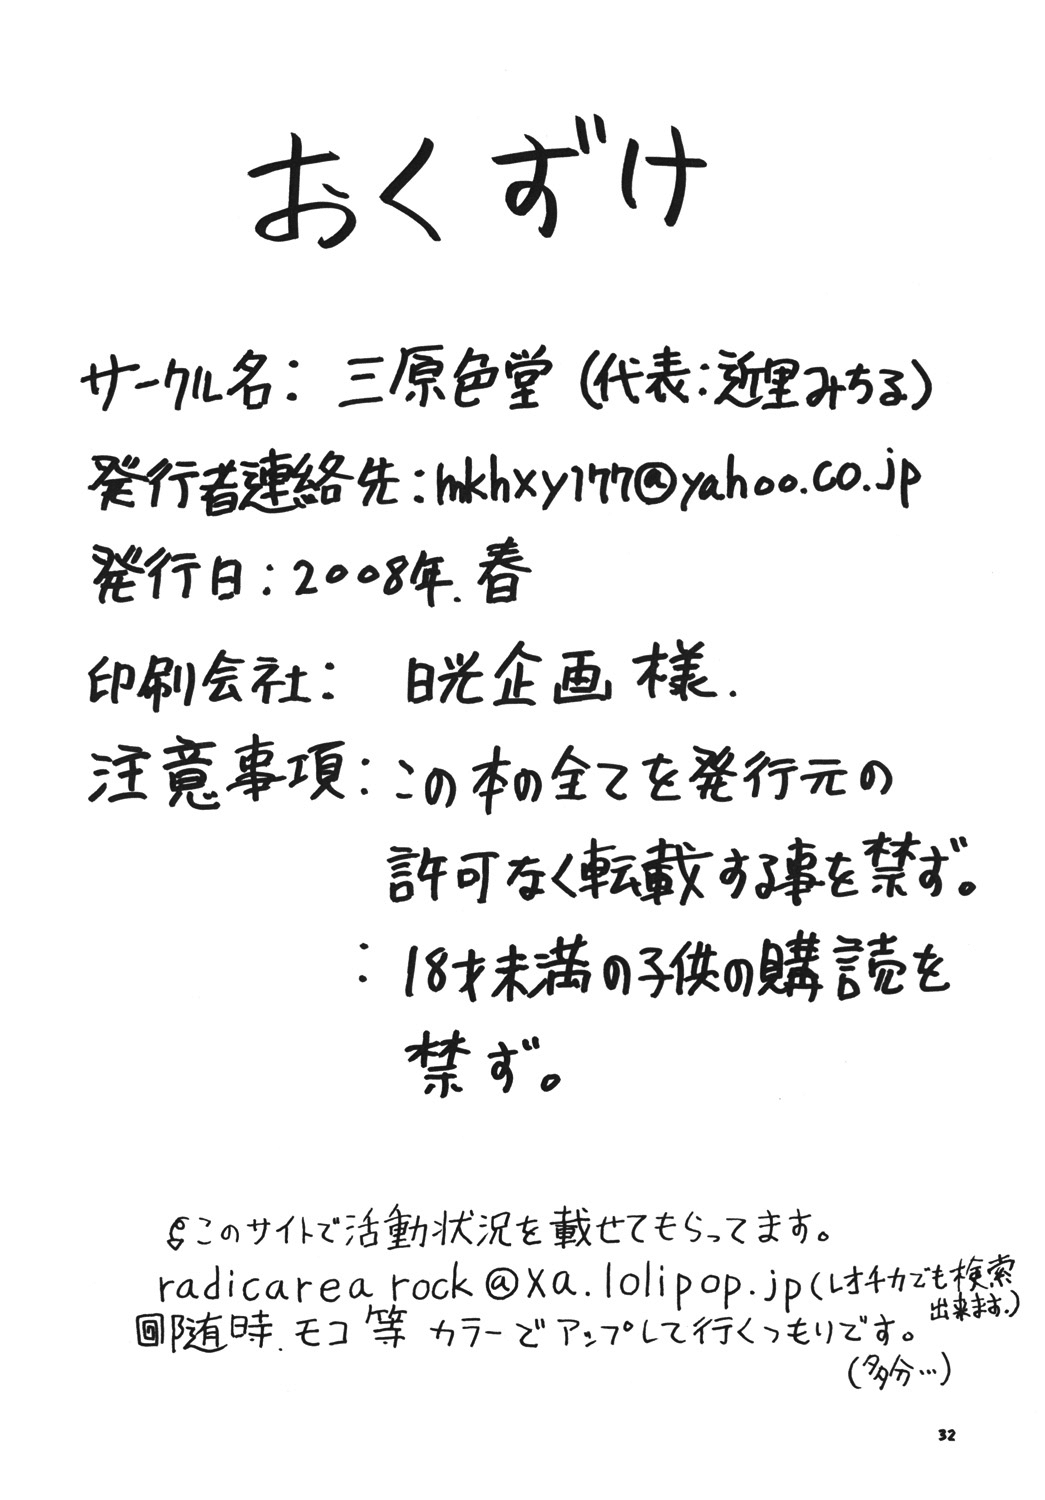 おくずけ
サークル名：三原色堂（代表：近里みちる）
発行者連絡先：mkhxy177@yahoo.co.jp
発行日：2008年.春
印刷会社：日光企画 様.
注意事項：この本の全てを発行元の
許可なく転載する事を禁ず。
：18才未満の子供の購読を
禁ず。
このサイトで活動状況を載せてもらってます。
radicarea rock@xa.lolipop.jp（レオチカでも検索
出来ます。）
随時.モコ等 カラーでアップして行くつもりです。
（多分…）
32